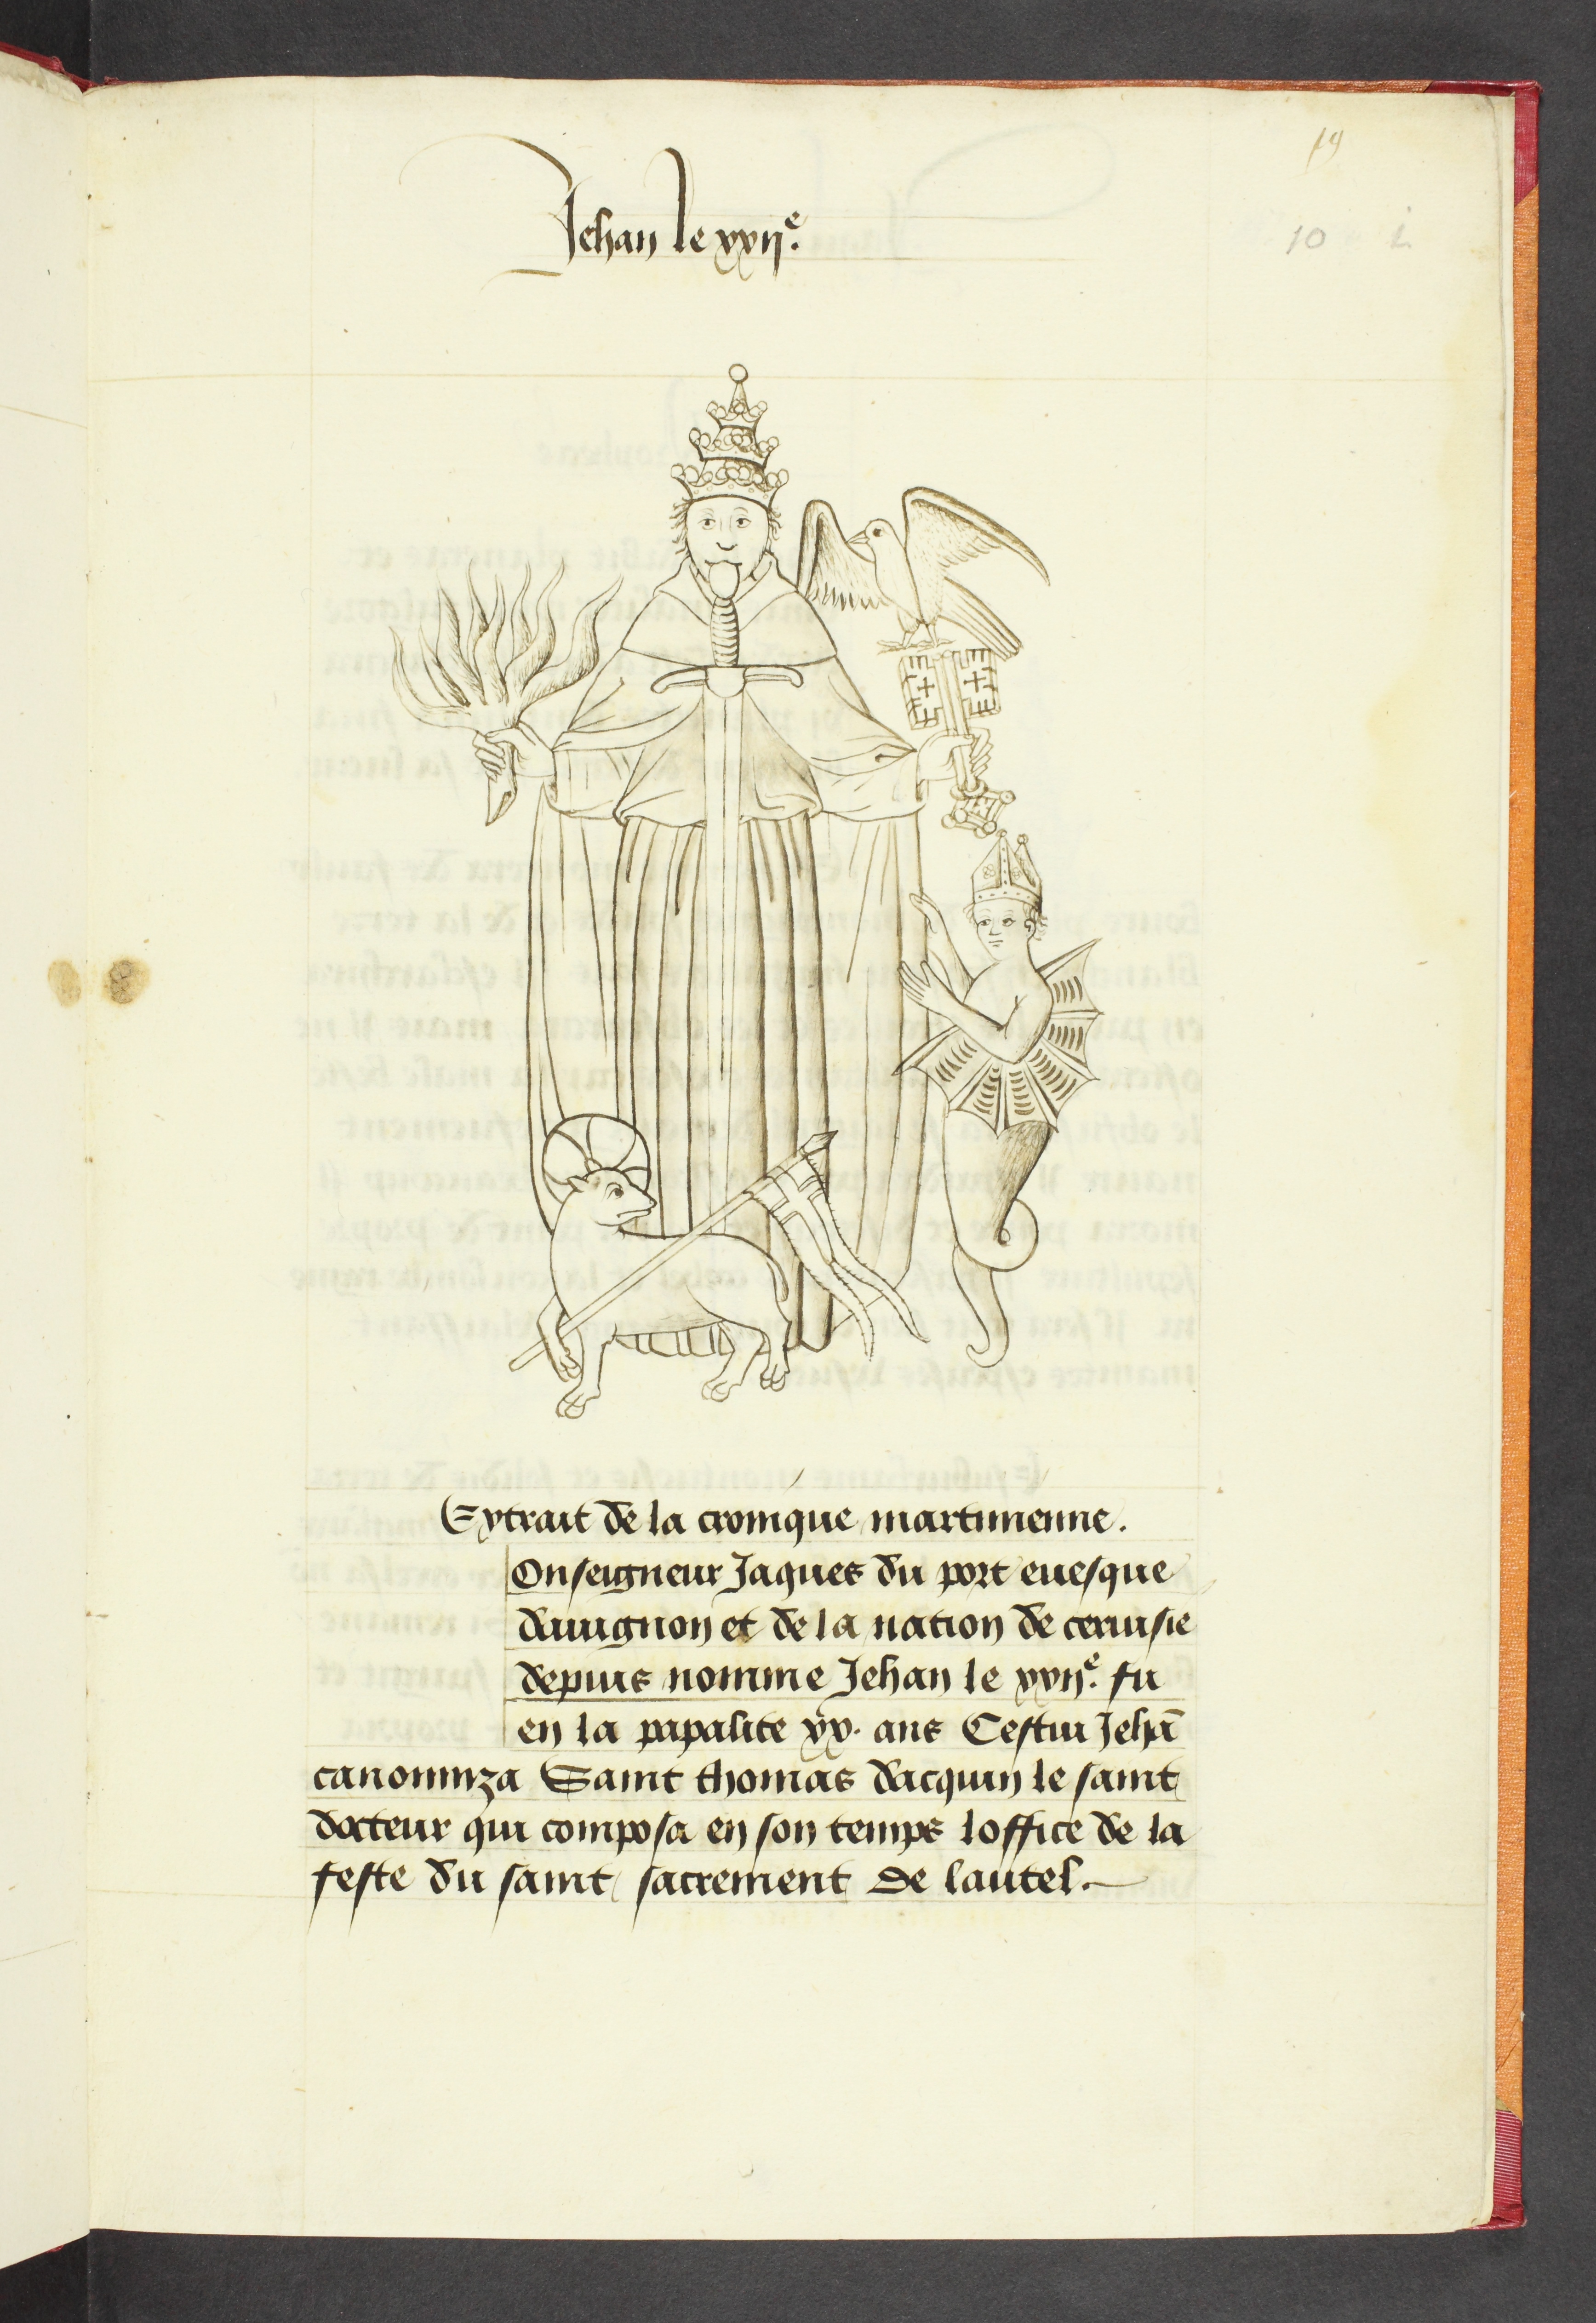 19
10
Jehan le xxije.
Extrait de la cronique martinienne.
Onseigneur Jaques du port euesque
dauignon et de la nation de ceruisie
depuis nomme Jehan le xxije. fu
en la papalite xx. ans Cestui Jehā
canoniza Saint thomas dacquin le saint
docteur qui composa en son temps loffice de la
feste du saint sacrement de lautel.